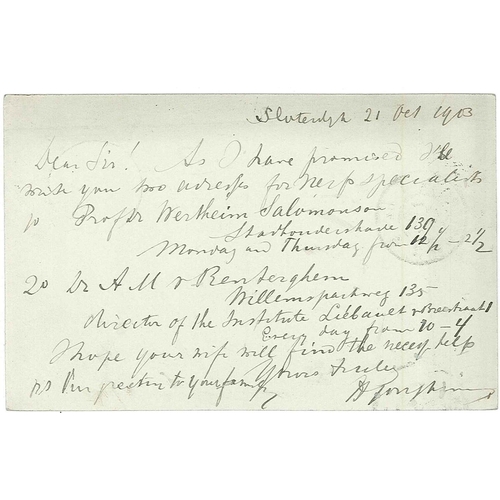 Sloterdyk 21 Oct 1903
Dear Sir! As I have promised I'll
wish you two adresses for nerfspecialists
1o Profdr Wertheim Salomonson
Stadhouderskade 139
Monday and Thursday from 12 1/2 - 2 1/2
2o Dr A M v Renterghem
Willemsparkweg 135
director of the Institute Liébault v Breestraat 1
Every day from 10 - 4
I hope your wife will find the necess help
to your family
Yours truly